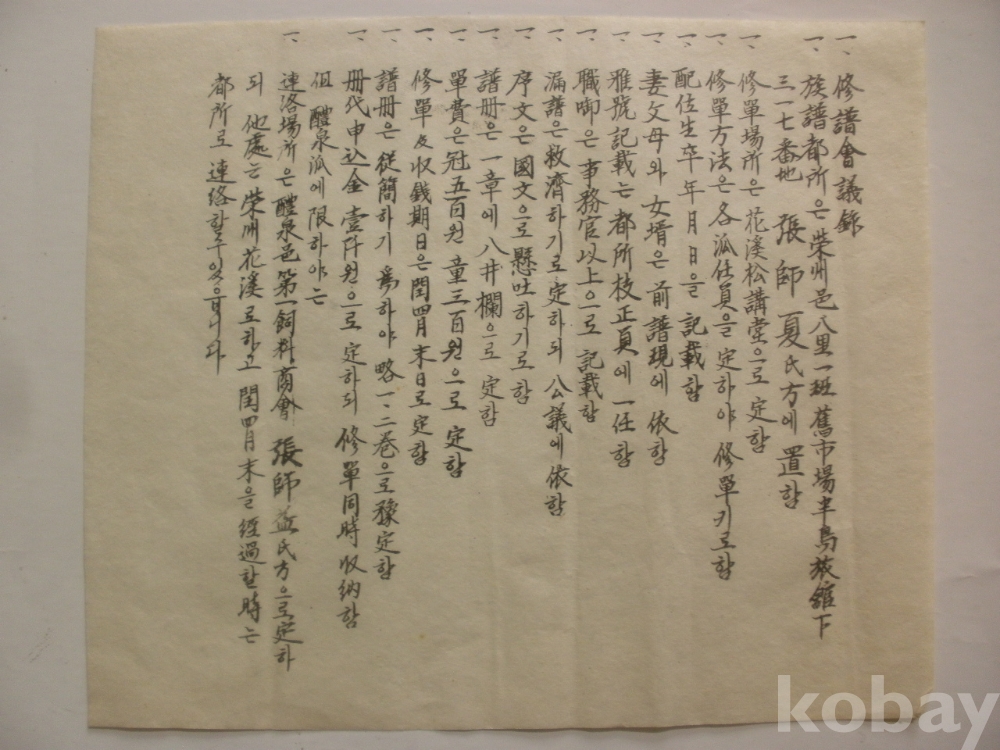 一、修譜會議錄
一、族譜都所은 榮州邑 八里一班 舊市場 半島旅館下
三一七番地 張師夏氏方에 置함
一、修單場所은 花溪松講堂으로 定함
一、修單方法은 各派任員을 定하야 修單키로함
一、配位生卒年月日을 記載함
一、妻父母와 女壻은 前譜現에 依함
一、雅號記載는 都所校正員에 一任함
一、職啣은 事務官以上으로 記載함
一、漏譜은 救濟하기로 定하되 公議에 依함
一、序文은 國文으로 懸吐하기로함
一、譜册은 一章에 八井欄으로 定함
一、單費은 冠五百원 童三百원으로 定함
一、修單及收錢期日은 閏四月末日로 定함
一、譜册은 從簡하기 爲하야 略一、二巻으로 豫定함
一、册代申込金 壹阡원으로 定하되 修單同時收納함
但 醴泉派에 限하야는
一、連洛場所은 醴泉邑 第一飼料商會 張師益氏方으로 定하
되 他處는 榮州花溪로하고 閏四月末을 經過할時는
都所로 連絡할수있읍니다
kobay